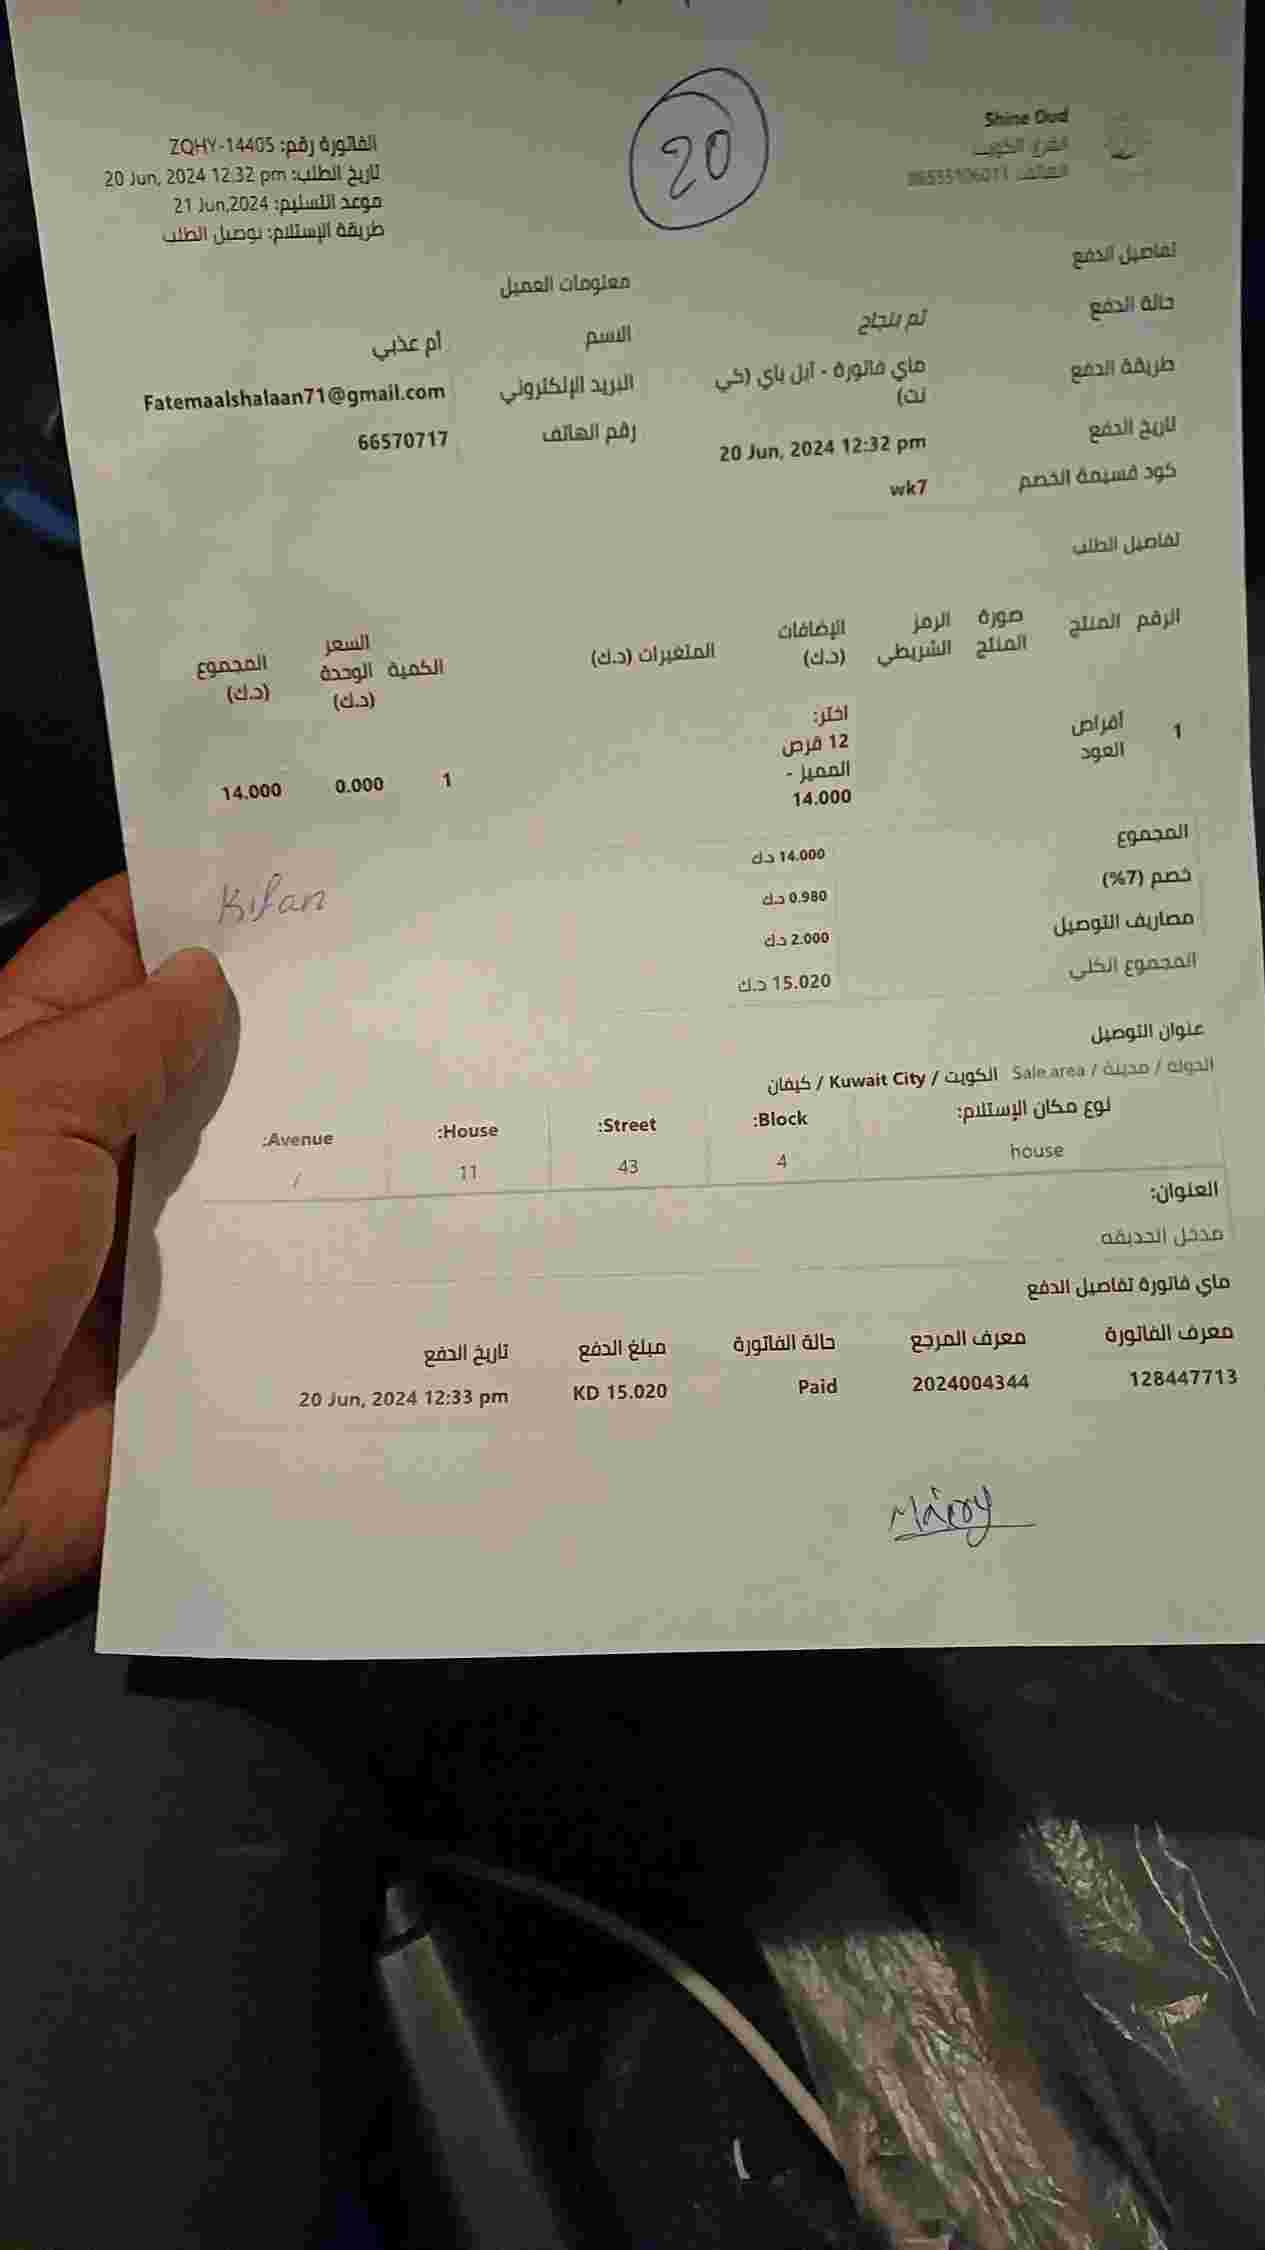 20
Shine Oud
الفاتورة رقم: ZQHY-14405
تاريخ الطلب: 20 Jun, 2024 12:32 pm
موعد التسليم: 21 Jun,2024
طريقة الإستلام: توصيل الطلب
تفاصيل الدفع
حالة الدفع تم بنجاح
طريقة الدفع ماي فاتورة - آبل باي (كي نت)
تاريخ الدفع 20 Jun, 2024 12:32 pm
كود قسيمة الخصم wk7
معلومات العميل
الاسم أم عذبي
البريد الإلكتروني Fatemaalshalaan71@gmail.com
رقم الهاتف 66570717
تفاصيل الطلب
الرقم المنتج صورة المنتج الرمز الشريطي الإضافات (د.ك) المتغيرات (د.ك) الكمية السعر الوحدة (د.ك) المجموع (د.ك)
1 أقراص العود اختر: 12 قرص المميز - 14.000 1 0.000 14.000
المجموع 14.000 د.ك
خصم (7%) 0.980 د.ك
مصاريف التوصيل 2.000 د.ك
المجموع الكلي 15.020 د.ك
Kifan
عنوان التوصيل
الدولة / مدينة / Sale.area الكويت / Kuwait City / كيفان
نوع مكان الإستلام: Block: Street: House: Avenue:
house 4 43 11 /
العنوان:
مدخل الحديقه
ماي فاتورة تفاصيل الدفع
معرف الفاتورة معرف المرجع حالة الفاتورة مبلغ الدفع تاريخ الدفع
128447713 2024004344 Paid KD 15.020 20 Jun, 2024 12:33 pm